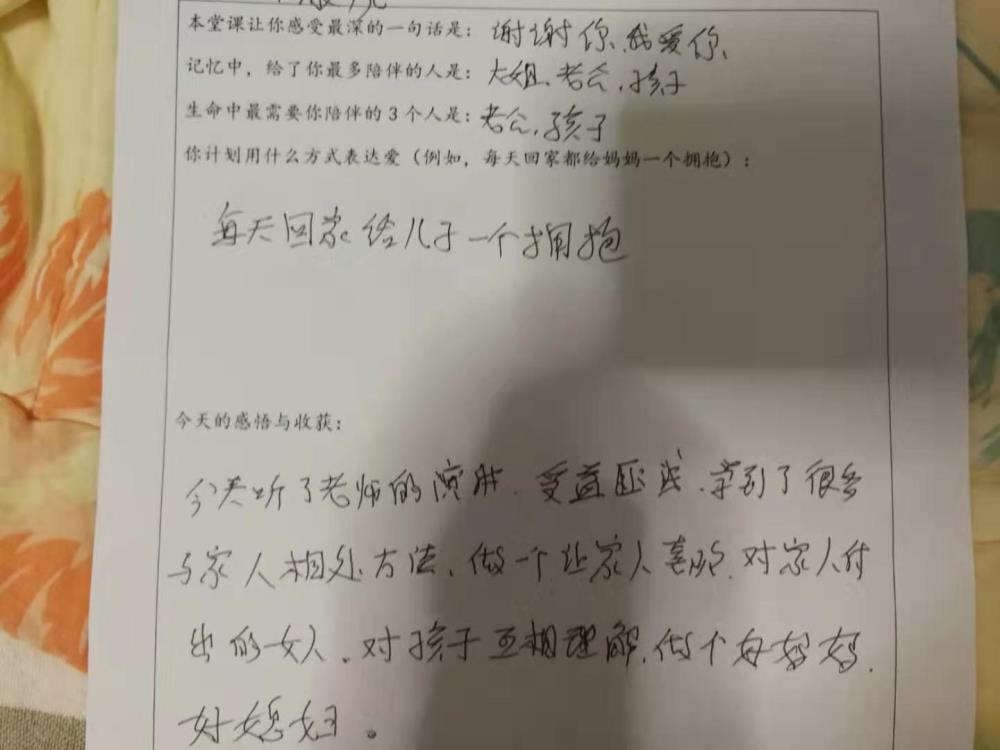 本堂课让你感受最深的一句话是：谢谢你、我爱你、
记忆中，给了你最多陪伴的人是：大姐、老公、孩子
生命中最需要你陪伴的3个人是：老公、孩子
你计划用什么方式表达爱（例如，每天回家都给妈妈一个拥抱）：
每天回家给儿子一个拥抱
今天的感悟与收获：
今天听了老师的演讲、受益匪浅、拿到了很多
与家人相处方法、做一个让家人喜欢、对家人付
出的女人、对孩子互相理解、做个好妈妈、
好媳妇。